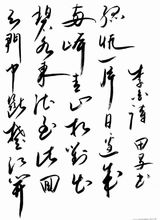 天门中断楚江开
碧水东流至此回
两岸青山相对出
孤帆一片日边来
李白诗 田书